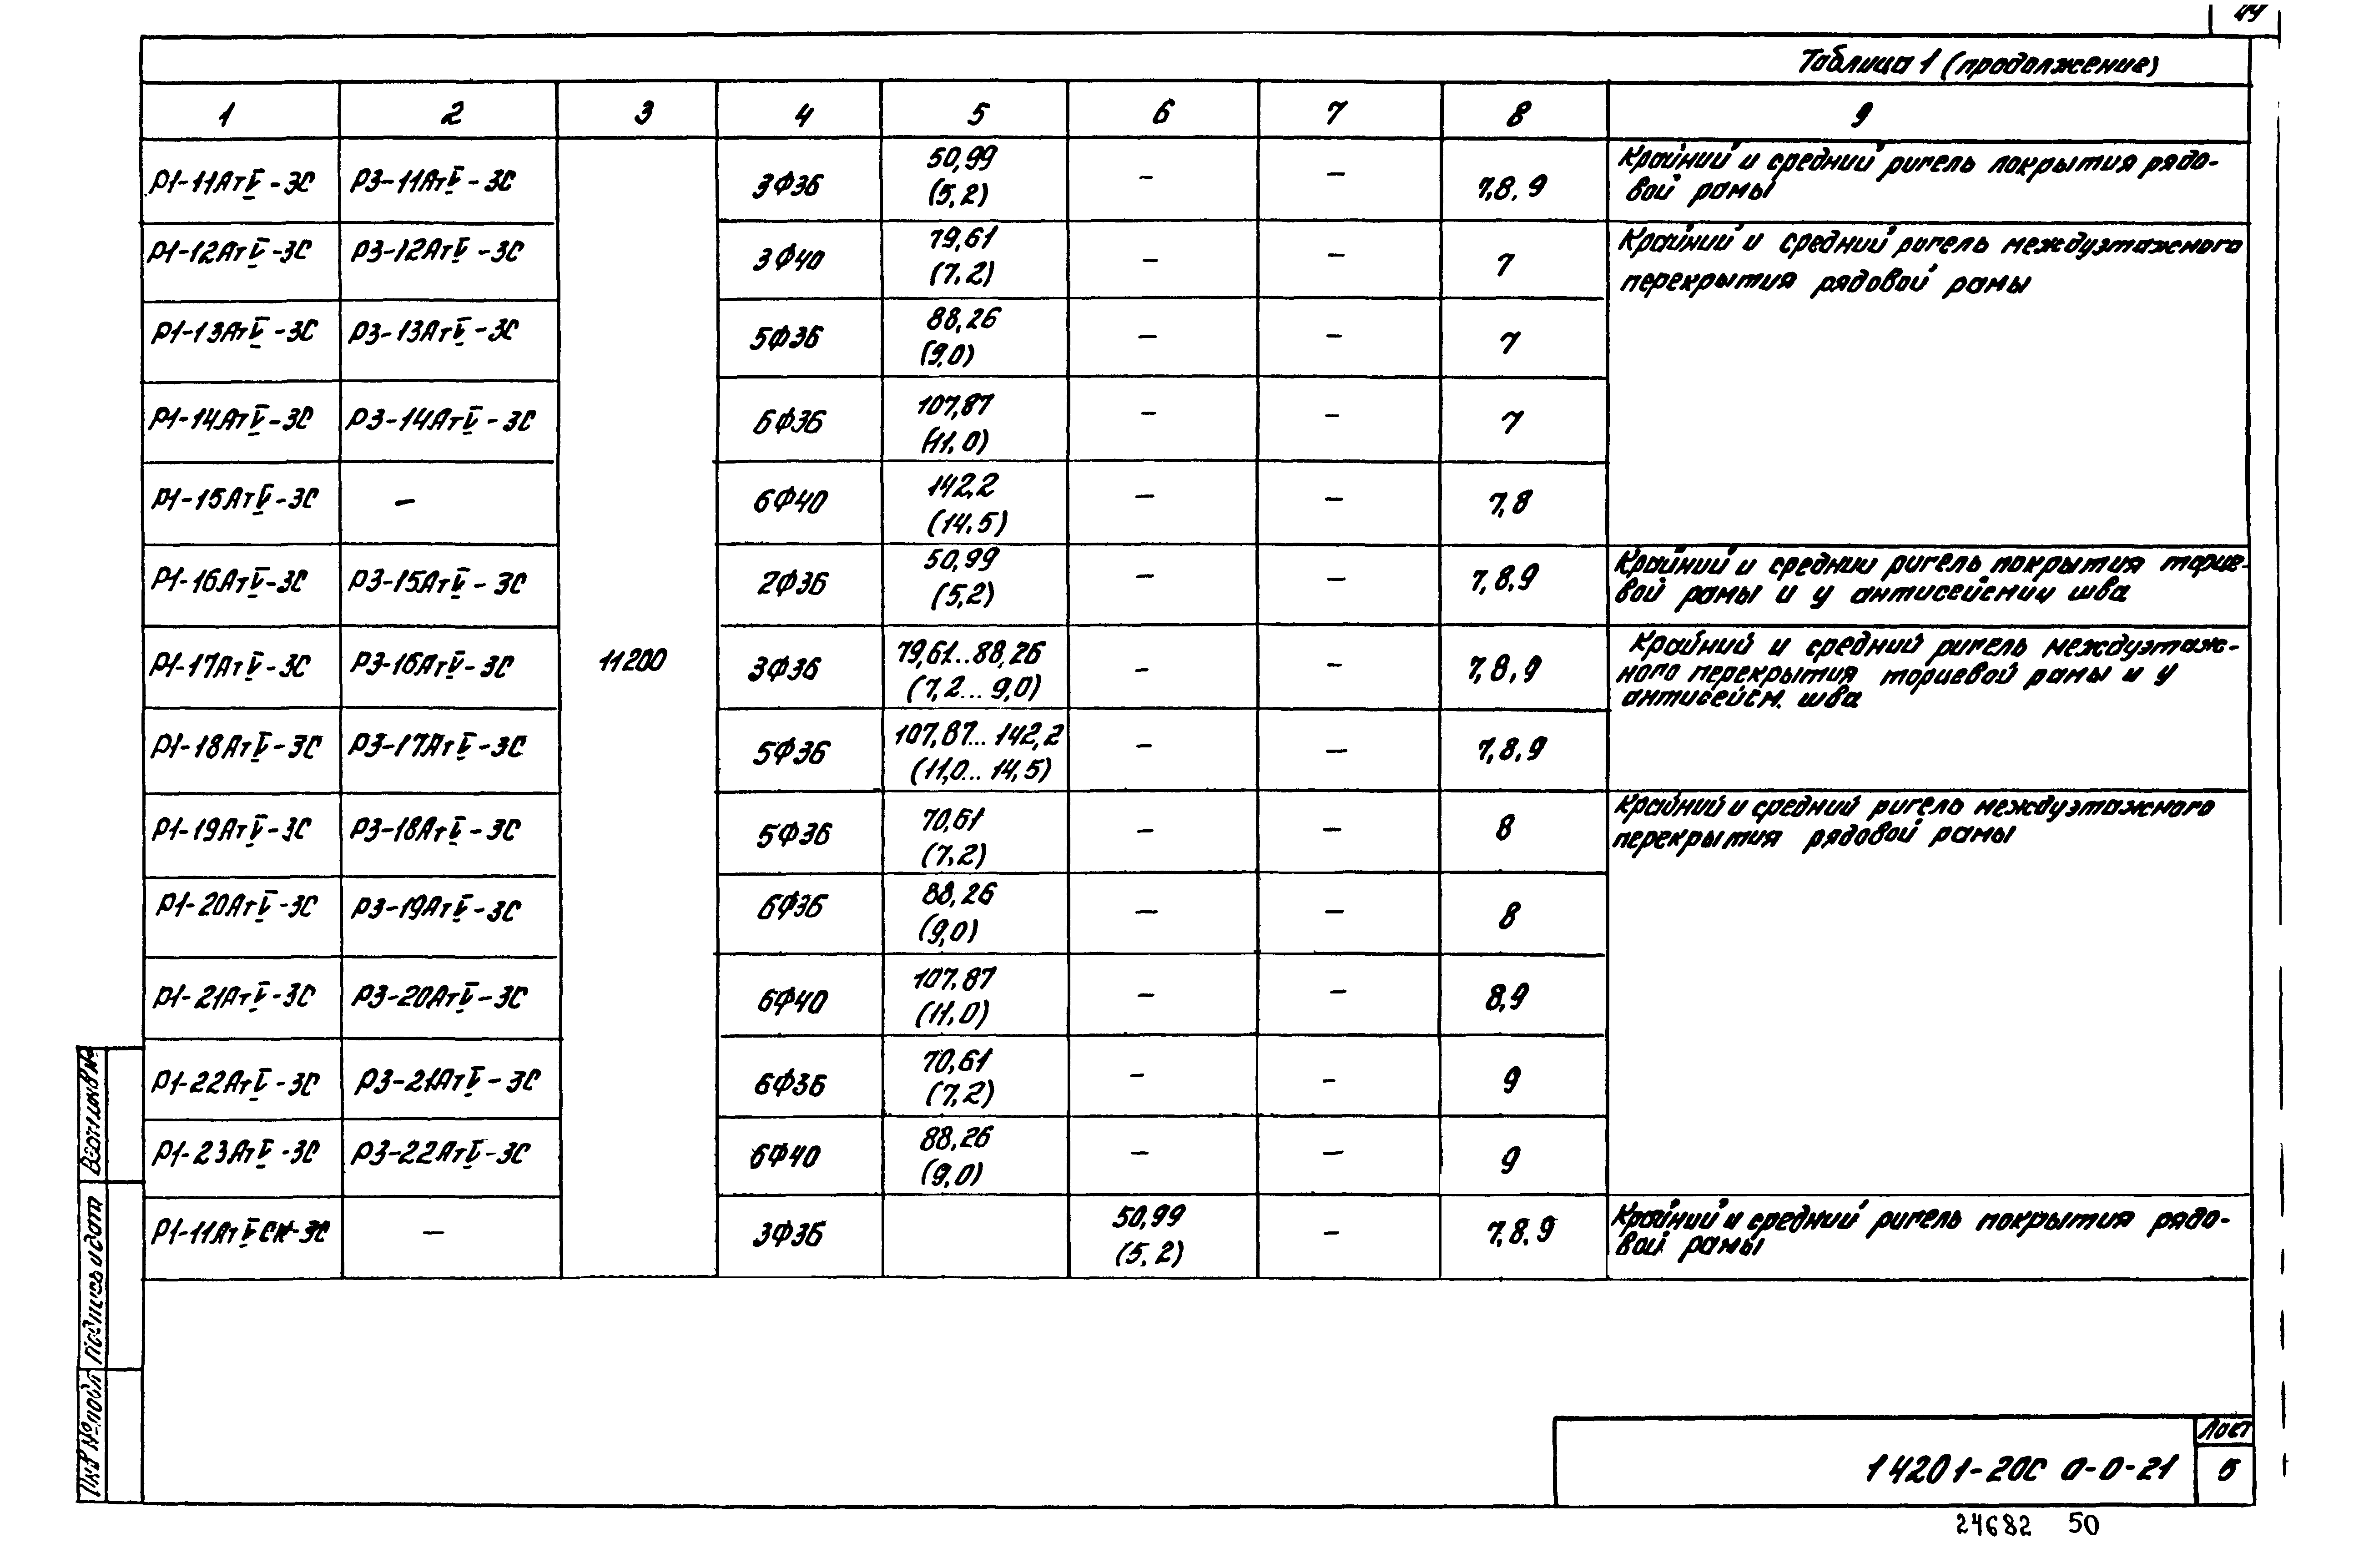 44
Таблица 1 (продолжение)
1 2 3 4 5 6 7 8 9
Р1-11АтV-3С Р3-11АтV-3С 3Ф36 50,99 (5,2) — — 7,8,9 Крайний и средний ригель покрытия рядо-
вой рамы
Р1-12АтV-3С Р3-12АтV-3С 3Ф40 79,61 (7,2) — — 7 Крайний и средний ригель междуэтажного
перекрытия рядовой рамы
Р1-13АтV-3С Р3-13АтV-3С 5Ф36 88,26 (9,0) — — 7
Р1-14АтV-3С Р3-14АтV-3С 6Ф36 107,87 (11,0) — — 7
Р1-15АтV-3С — 6Ф40 142,2 (14,5) — — 7,8
Р1-16АтV-3С Р3-15АтV-3С 2Ф36 50,99 (5,2) — — 7,8,9 Крайний и средний ригель покрытия торце-
вой рамы и у антисейсмич шва
Р1-17АтV-3С Р3-16АтV-3С 11200 3Ф36 79,61...88,26 (7,2...9,0) — — 7,8,9 Крайний и средний ригель междуэтаж-
ного перекрытия торцевой рамы и у
антисейсм. шва
Р1-18АтV-3С Р3-17АтV-3С 5Ф36 107,87...142,2 (11,0...14,5) — — 7,8,9
Р1-19АтV-3С Р3-18АтV-3С 5Ф36 70,61 (7,2) — — 8 Крайний и средний ригель междуэтажного
перекрытия рядовой рамы
Р1-20АтV-3С Р3-19АтV-3С 6Ф36 88,26 (9,0) — — 8
Р1-21АтV-3С Р3-20АтV-3С 6Ф40 107,87 (11,0) — — 8,9
Р1-22АтV-3С Р3-21АтV-3С 6Ф36 70,61 (7,2) — — 9
Р1-23АтV-3С Р3-22АтV-3С 6Ф40 88,26 (9,0) — — 9
Р1-11АтVСК-3С — 3Ф36 50,99 (5,2) — 7,8,9 Крайний и средний ригель покрытия рядо-
вой рамы
Взам.инв.№
Подпись и дата
Инв № подл
1 420 1-20С 0-0-21
Лист
5
24682 50